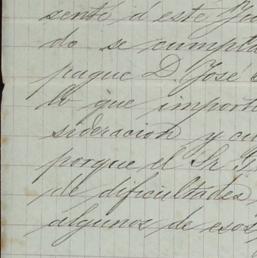 senté á este Ju
do se cumpla
pague D. José
lo que import
sideracion y cu
porque el Sr. G
de dificultades
algunos de esos